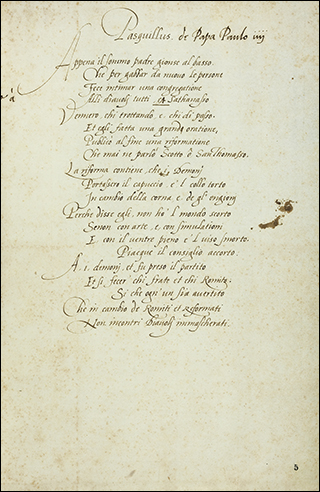 Pasquillus de Papa Paulo iiij
Appena il sommo padre gionse al basso
Che per gabbar da nuovo le persone
Fece intimar una congregatione
Alli diavoli tutti et Sathanasso
Vennero chi trottando, e, chi di passo
Et egli fatta una grande oratione,
Publicò al fine una riformatione
Che mai ne parlò Scotto ò San Thomasso.
La riforma contiene, che i Demonij
Portassero il capuccio, e 'l collo torto
In cambio della corna, e de gl'
Perche disse egli, non ho 'l mondo scorto
Senon con arte, e, con simulationi
E con il ventre pieno e 'l viso smorto.
Piacque il consiglio accorto.
A i demonij, et fu preso il partito
Et si fecer' chi frate et chi Romita.
Si che ogn'un sia avertito
Che in cambio de Romiti et Reformati
Non incontri Diavoli immascherati.
5